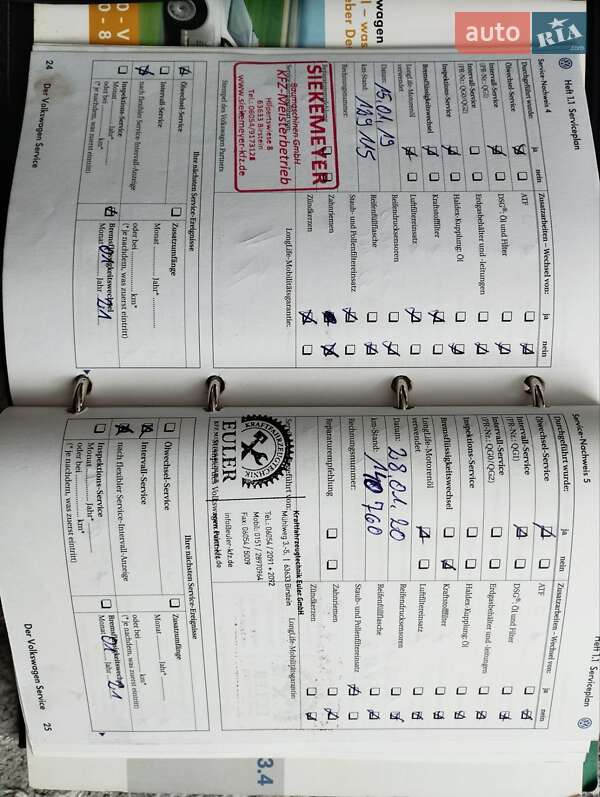 auto
RIA
.com
0 - V
0 - 8
l – was
eber De
wagen
Heft 1.1 Serviceplan
Service-Nachweis 4
Durchgeführt wurde:
ja
nein
Ölwechsel-Service
Intervall-Service
(PR-Nr.: QG1)
Intervall-Service
(PR-Nr.: QG0/QG2)
Inspektions-Service
Bremsflüssigkeitswechsel
LongLife-Motorenöl
verwendet
Datum: 15.01.19
km-Stand: 189 115
Rechnungsnummer:
Zusatzarbeiten – Wechsel von:
ja
nein
ATF
DSG®: Öl und Filter
Erdgasbehälter und -leitungen
Haldex-Kupplung: Öl
Kraftstofffilter
Luftfiltereinsatz
Reifendrucksensoren
Reifenfüllflasche
Staub- und Pollenfiltereinsatz
Zahnriemen
Zündkerzen
LongLife-Mobilitätsgarantie:
SIEKEMEYER
Baumaschinen GmbH
KFZ-Meisterbetrieb
Hilpertswiese 8
63633 Birstein
Tel.: 06054/9173128
www.siekemeyer-kfz.de
Stempel des Volkswagen Partners
Ihre nächsten Service-Ereignisse
Ölwechsel-Service
Intervall-Service
nach flexibler Service-Intervall-Anzeige
Inspektions-Service
Monat Jahr*
(* je nachdem, was zuerst eintritt)
Zusatzumfänge
Monat Jahr*
oder bei km*
(* je nachdem, was zuerst eintritt)
Bremsflüssigkeitswechsel
Monat 01 Jahr 21
24
Der Volkswagen Service
Heft 1.1 Serviceplan
Service-Nachweis 5
Durchgeführt wurde:
ja
nein
Ölwechsel-Service
Intervall-Service
(PR-Nr.: QG1)
Intervall-Service
(PR-Nr.: QG0/QG2)
Inspektions-Service
Bremsflüssigkeitswechsel
LongLife-Motorenöl
verwendet
Datum: 28.01.20
km-Stand: 140 760
Rechnungsnummer:
Reparaturempfehlung
Zusatzarbeiten – Wechsel von:
ja
nein
ATF
DSG®: Öl und Filter
Erdgasbehälter und -leitungen
Haldex-Kupplung: Öl
Kraftstofffilter
Luftfiltereinsatz
Reifendrucksensoren
Reifenfüllflasche
Staub- und Pollenfiltereinsatz
Zahnriemen
Zündkerzen
LongLife-Mobilitätsgarantie:
KRAFTFAHRZEUGTECHNIK
EULER
Kraftfahrzeugtechnik Euler GmbH
Mühlweg 3.-5. | 63633 Birstein
Tel.: 06054 / 2091 + 2092
Mobil: 0151 / 28970964
Fax: 06054 / 5009
info@euler-kfz.de
Ihre nächsten Service-Ereignisse
Ölwechsel-Service
Intervall-Service
nach flexibler Service-Intervall-Anzeige
Inspektions-Service
Monat Jahr*
oder bei km*
(* je nachdem, was zuerst eintritt)
Zusatzumfänge
Monat Jahr*
oder bei km*
(* je nachdem, was zuerst eintritt)
Bremsflüssigkeitswechsel
Monat 01 Jahr 21
Der Volkswagen Service
25
3.4